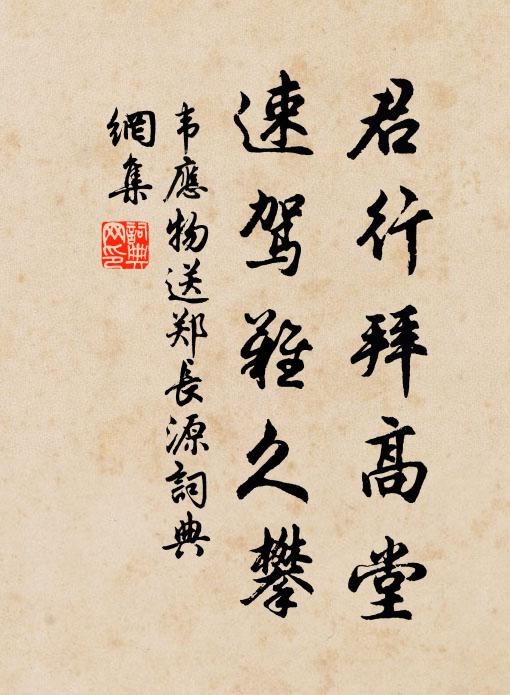 君行拜高堂
速驾難久攀
韦應物送郑長源詞典
網集
詞典
网印